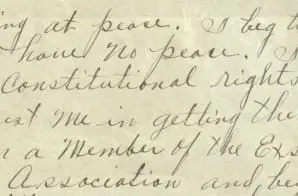 ing at peace. I beg t
have no peace. I
Constitutional rights
ist me in getting the
a Member of the Exs
Association and be